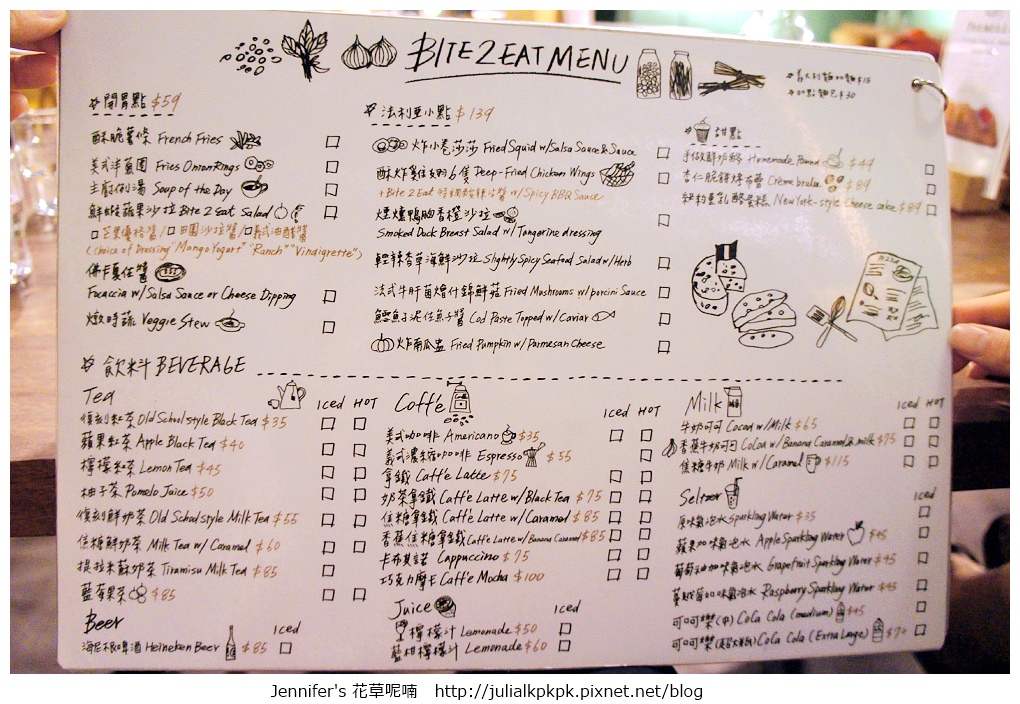 BITE2EAT MENU
加點麵包$30
開胃點 $59
酥脆薯條 French Fries
美式洋蔥圈 Fries Onion Rings
主廚例湯 Soup of the Day
鮮蝦蘋果沙拉 Bite 2 eat Salad
芒果優格醬/田園沙拉醬/義式油醋醬
(choice of Dressing "Mango Yogurt" "Ranch" "Vindigrette")
佛卡夏佐醬
Focaccia w/Salsa Sauce or Cheese Dipping
燉時蔬 Veggie Stew
法利亞小點 $139
炸小卷莎莎 Fried Squid w/Salsa Sauce & Sauce
6隻 Deep-Fried Chicken Wings
+Bite 2 Eat 特調酸辣沾醬 w/Spicy BBQ Sauce
煙燻鴨胸香橙沙拉
Smoked Duck Breast Salad w/ Tangerine dressing
輕辣香草海鮮沙拉 Slightly Spicy Seafood Salad w/Herb
法式牛肝菌燴什錦鮮菇 Fried Mushrooms w/porcini Sauce
鱈魚泥佐魚子醬 Cod Paste Topped w/Caviar
炸南瓜盅 Fried Pumpkin w/Parmesan Cheese
甜點
手做鮮奶酪 Homemade Pound $49
杏仁脆餅烤布蕾 Crème brulee $89
紐約重乳酪蛋糕 New York-style Cheese cake $89
飲料 BEVERAGE
Tea
Iced HOT
復刻紅茶 Old School style Black Tea $35
蘋果紅茶 Apple Black Tea $40
檸檬紅茶 Lemon Tea $45
柚子茶 Pomelo Juice $50
復刻鮮奶茶 Old School style Milk Tea $55
焦糖鮮奶茶 Milk Tea w/ Caramel $60
提拉米蘇奶茶 Tiramisu Milk Tea $85
藍莓果茶 $85
Beer
Iced
海尼根啤酒 Heineken Beer $85
Coffe
Iced HOT
美式咖啡 Americano $35
義式濃縮咖啡 Espresso $35
拿鐵 Caffe Latte $75
奶茶拿鐵 Caffe Latte w/Black Tea $75
焦糖拿鐵 Caffe Latte w/Caramel $85
香蕉焦糖拿鐵 Caffe Latte w/Banana Caramel $85
卡布其諾 Cappuccino $75
巧克力摩卡 Caffe Mocha $100
Juice
Iced
檸檬汁 Lemonade $50
藍柑檸檬汁 Lemonade $60
Milk
Iced HOT
牛奶可可 Cocoa w/Milk $65
香蕉牛奶可可 CoCoa w/Banana Caramel & milk $75
焦糖牛奶 Milk w/Caramel $115
Seltzer
Iced
原味氣泡水 Sparkling Water $35
蘋果口味氣泡水 Apple Sparkling Water $45
葡萄柚口味氣泡水 Grapefruit Sparkling Water $45
蔓越莓口味氣泡水 Raspberry Sparkling Water $45
可口可樂(中) CoCa Cola (medium) $45
可口可樂(超大瓶) CoCa Cola (Extra Large) $70
Jennifer's 花草呢喃 http://julialkpkpk.pixnet.net/blog